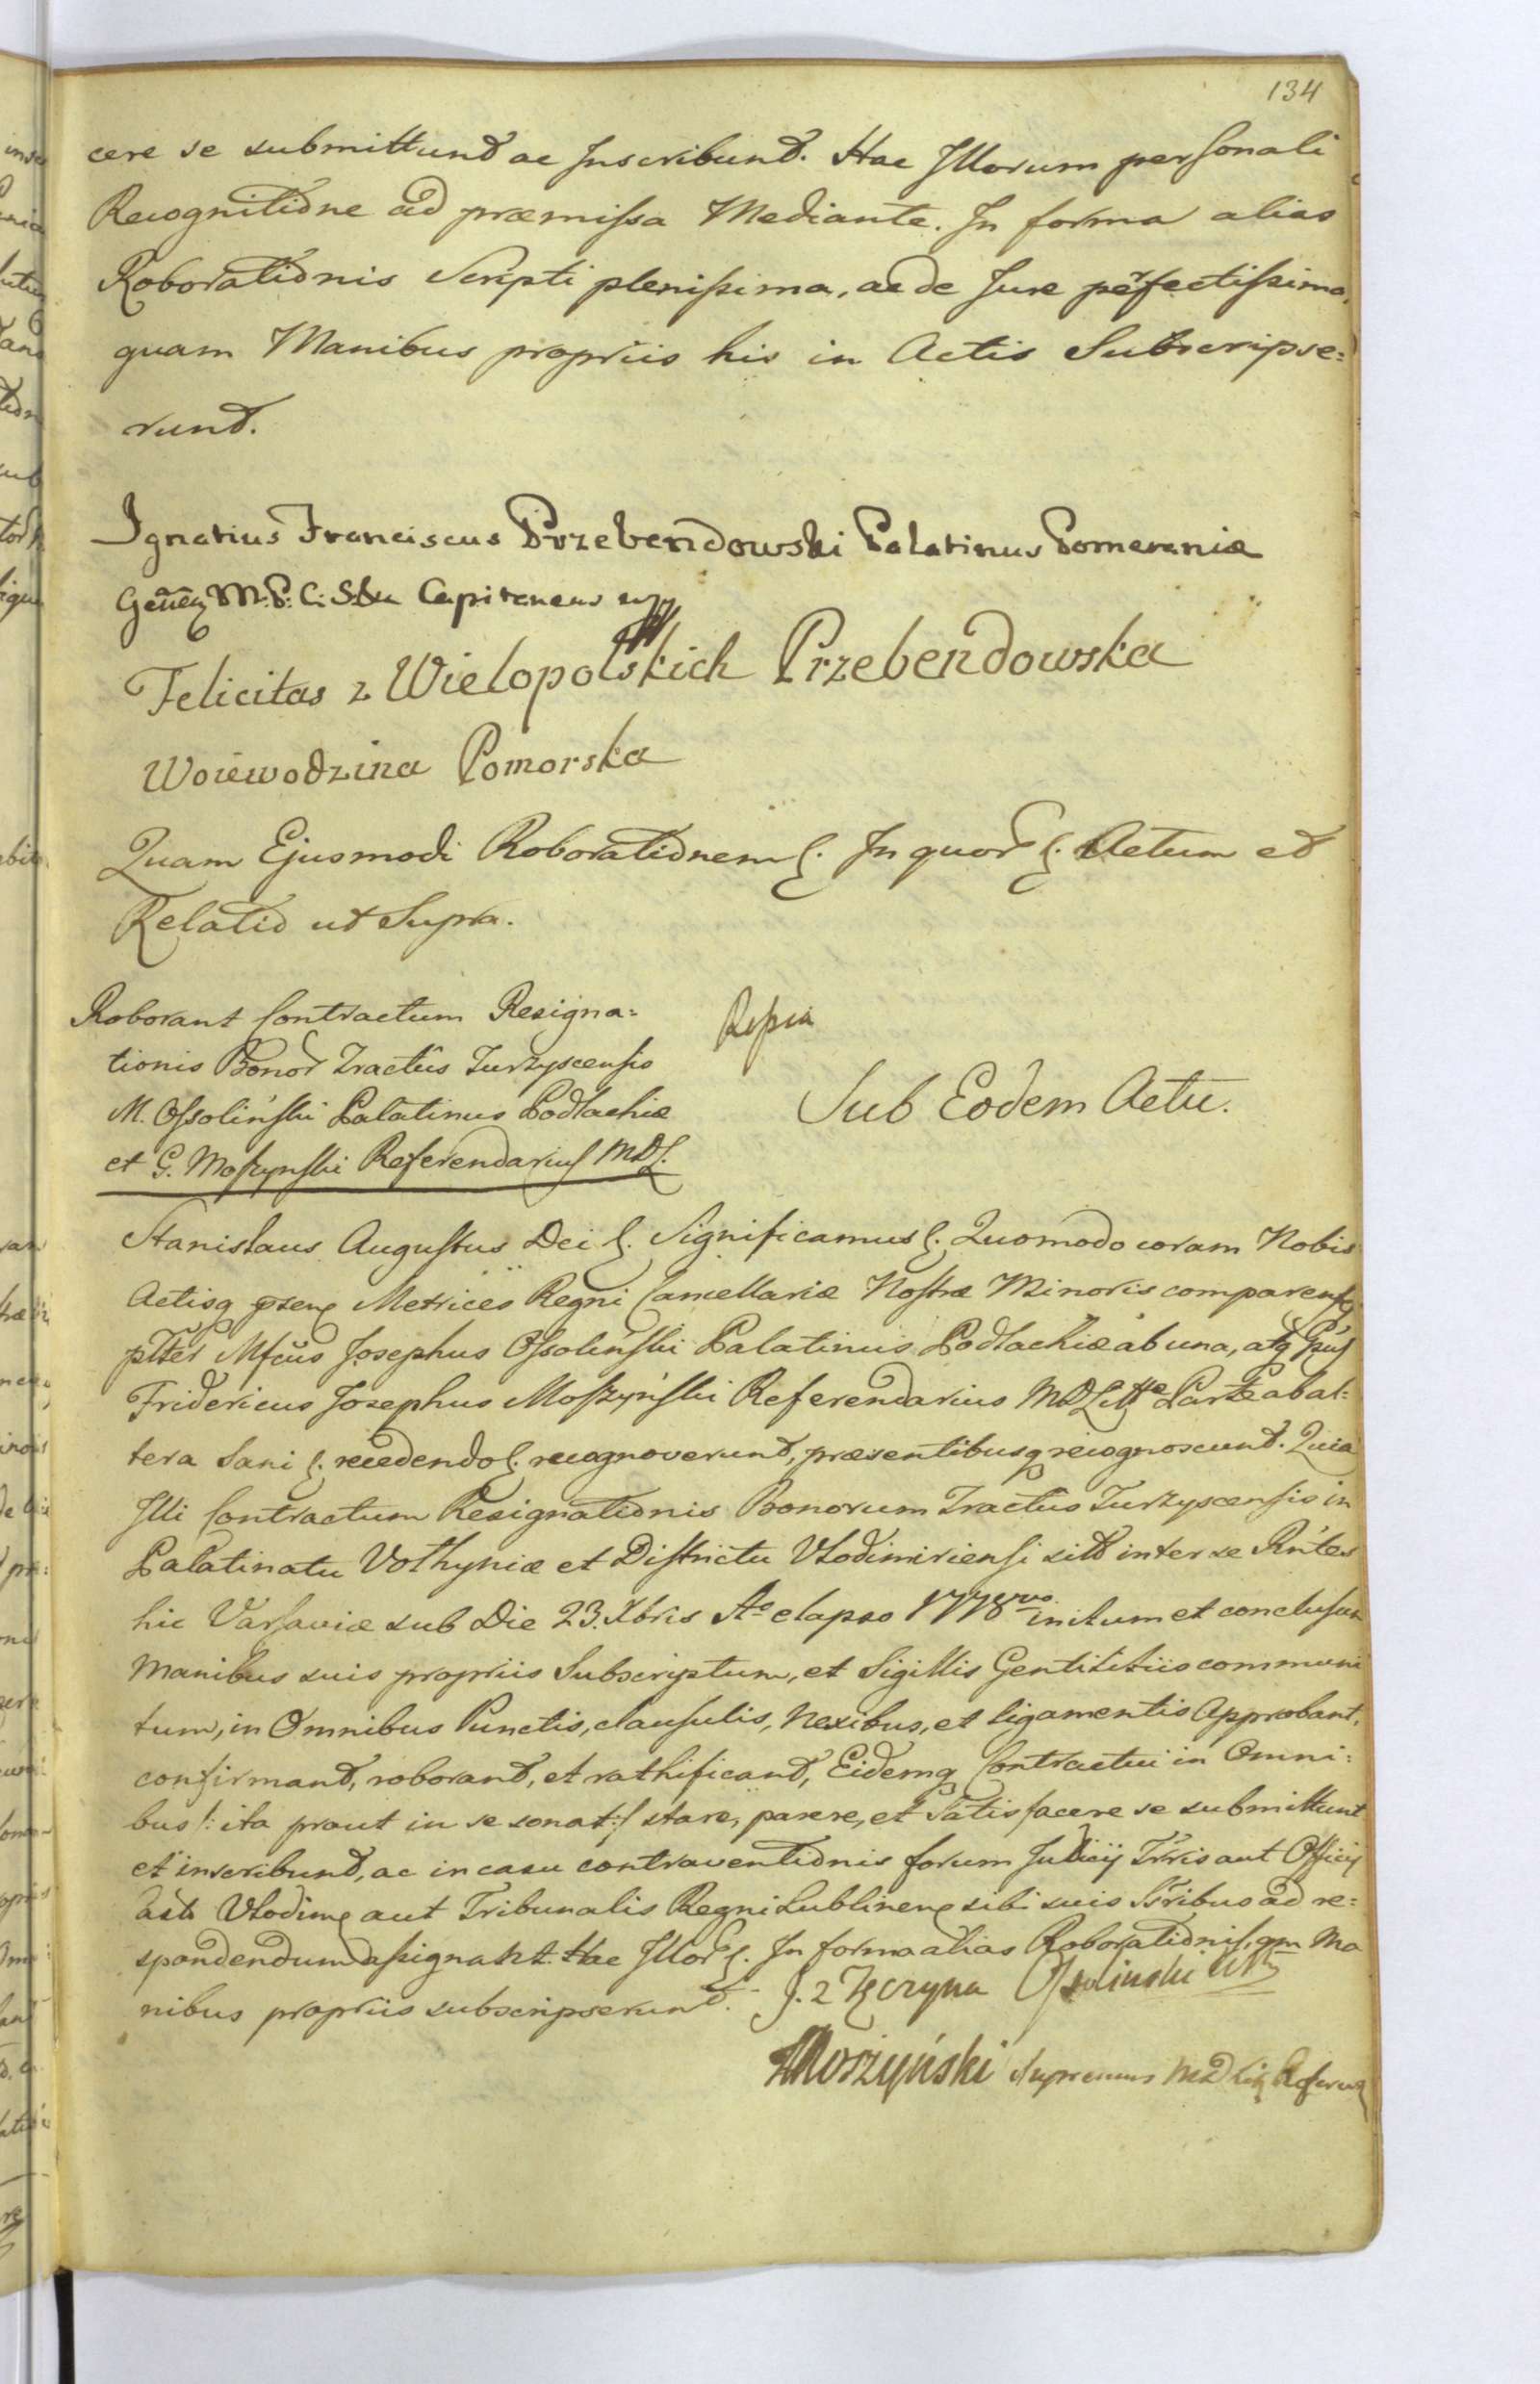 134
cere se submittunt ac Inscribunt. Hac Illorum personali
Recognitione ad præmissa Mediante. In forma alias
Roborationis Scripti plenissima, ac de Jure perfectissima,
quam Manibus propriis his in Actis Subscripse=
runt.
Ignatius Franciscus Przebendowski Palatinus Pomeraniæ
M. P. C. Capitaneus
Felicitas z Wielopolskich Przebendowska
Woiewodzina Pomorska
Quam Ejusmodi Roborationem &. In quor &. Actum et
Relatio ut Supra.
Roborant Contractum Resigna=
tionis Bonor Tractûs Turzyscensis
M. Ossoliński Palatinus Podlachiæ
et G. Moszynski Referendarius MDL.
Sub Eodem Actu.
Stanislaus Augustus Dei &. Significamus &. Quomodo coram Nobis
Actisq prnę Metrices Regni Cancellariæ Nostræ Minoris comparentes
plter Mfcus Josephus Ossoliński Palatinus Podlachiæ ab una, atq
Fridericus Josephus Moszyński Referendarius MDLitt Parte ab al=
tera Sani &. recedendo &. recognoverunt, præsentibusq recognoscunt. Quia
Illi Contractum Resignationis Bonorum Tractûs Turzyscensis in
Palatinatu Volhyniæ et Districtu Vlodimiriensi sitt inter se Rntes
hic Varsaviæ sub Die 23. Xbris Ao elapso 1778vo initum et conclusum
Manibus suis propriis Subscriptum, et Sigillis Gentilitiis communi
tum, in Omnibus Punctis, clausulis, Nexibus, et ligamentis Approbant,
confirmant, roborant, et rathificant, Eidemq Contractui in Omni=
bus /: ita prout in se sonat :/ stare, parere, et Satisfacere se submittunt
et inscribunt, ac in casu contraventionis forum Judicij Trris aut Officij
Vlodimę aut Tribunalis Regni Lublinenę sibi suis ad re=
spondendum assignant. Hac Illor &. In forma alias Roborationis, qm Ma
nibus propriis subscripserunt. J. z Tęczyna Ossolinski
Moszyński Supremus